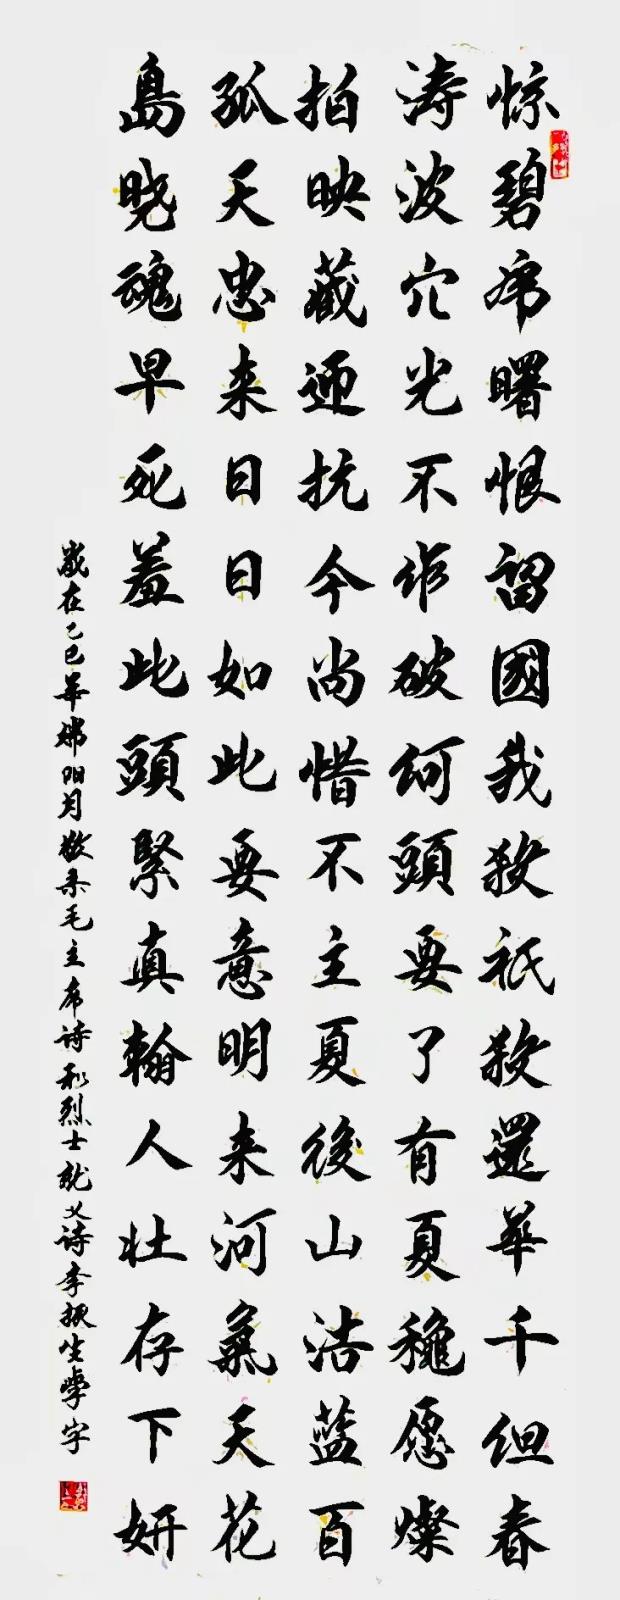 惊涛拍孤島
碧波映天晓
虎穴藏忠魂
曙光迎来早
恨不抗日死
留作今日羞
國破尚如此
我何惜此頭
殺頭不要緊
祇要主意真
殺了夏明翰
還有後来人
華夏山河壮
千穐浩氣存
但愿蓝天下
春燦百花妍
歲在乙巳年端阳月敬录毛主席诗和烈士就义诗李振生學字